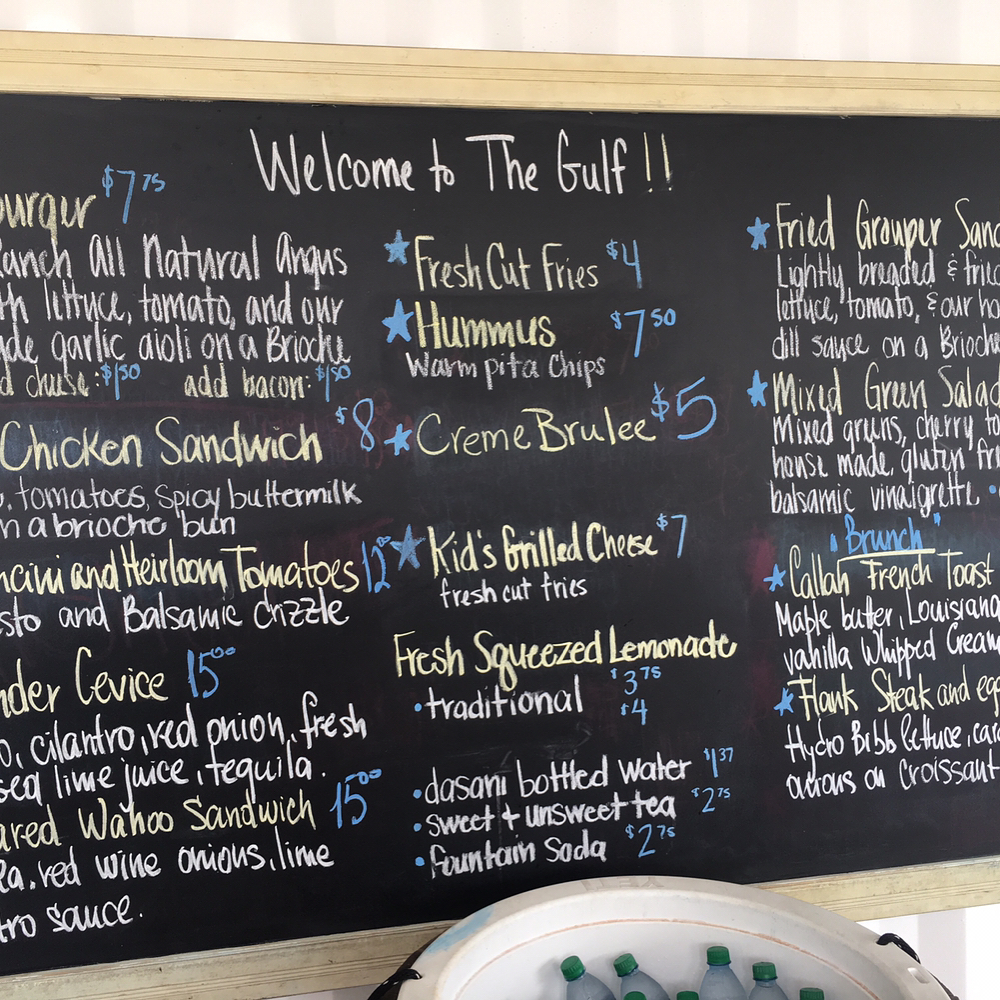 Welcome to The Gulf !!
burger $7 75
Ranch All Natural Angus
th lettuce, tomato, and our
de garlic aioli on a Brioche
d cheese: $1 50 add bacon: $1 50
Chicken Sandwich $8
, tomatoes, spicy buttermilk
n a brioche bun
ncini and Heirloom Tomatoes 12 00
sto and Balsamic drizzle
nder Cevice 15 00
o, cilantro, red onion, fresh
sed lime juice, tequila.
ared Wahoo Sandwich 15 00
la, red wine onions, lime
tro sauce.
Fresh Cut Fries $4
Hummus $7 50
Warm pita Chips
Creme Brulee $5
Kid's Grilled Cheese $7
fresh cut fries
Fresh Squeezed Lemonade
• traditional $3 75
$4
• dasani bottled water $1 37
• sweet + unsweet tea $2 75
• fountain soda $2 75
Fried Grouper Sand
Lightly breaded & fried
lettuce, tomato, & our ho
dill sauce on a Brioche
Mixed Green Salad
Mixed greens, cherry to
house made, gluten fre
balsamic vinaigrette •
"Brunch"
Callah French Toast
Maple butter, Louisiana
vanilla Whipped Cream
Flank Steak and eg
Hydro Bibb lettuce, car
onions on Croissant